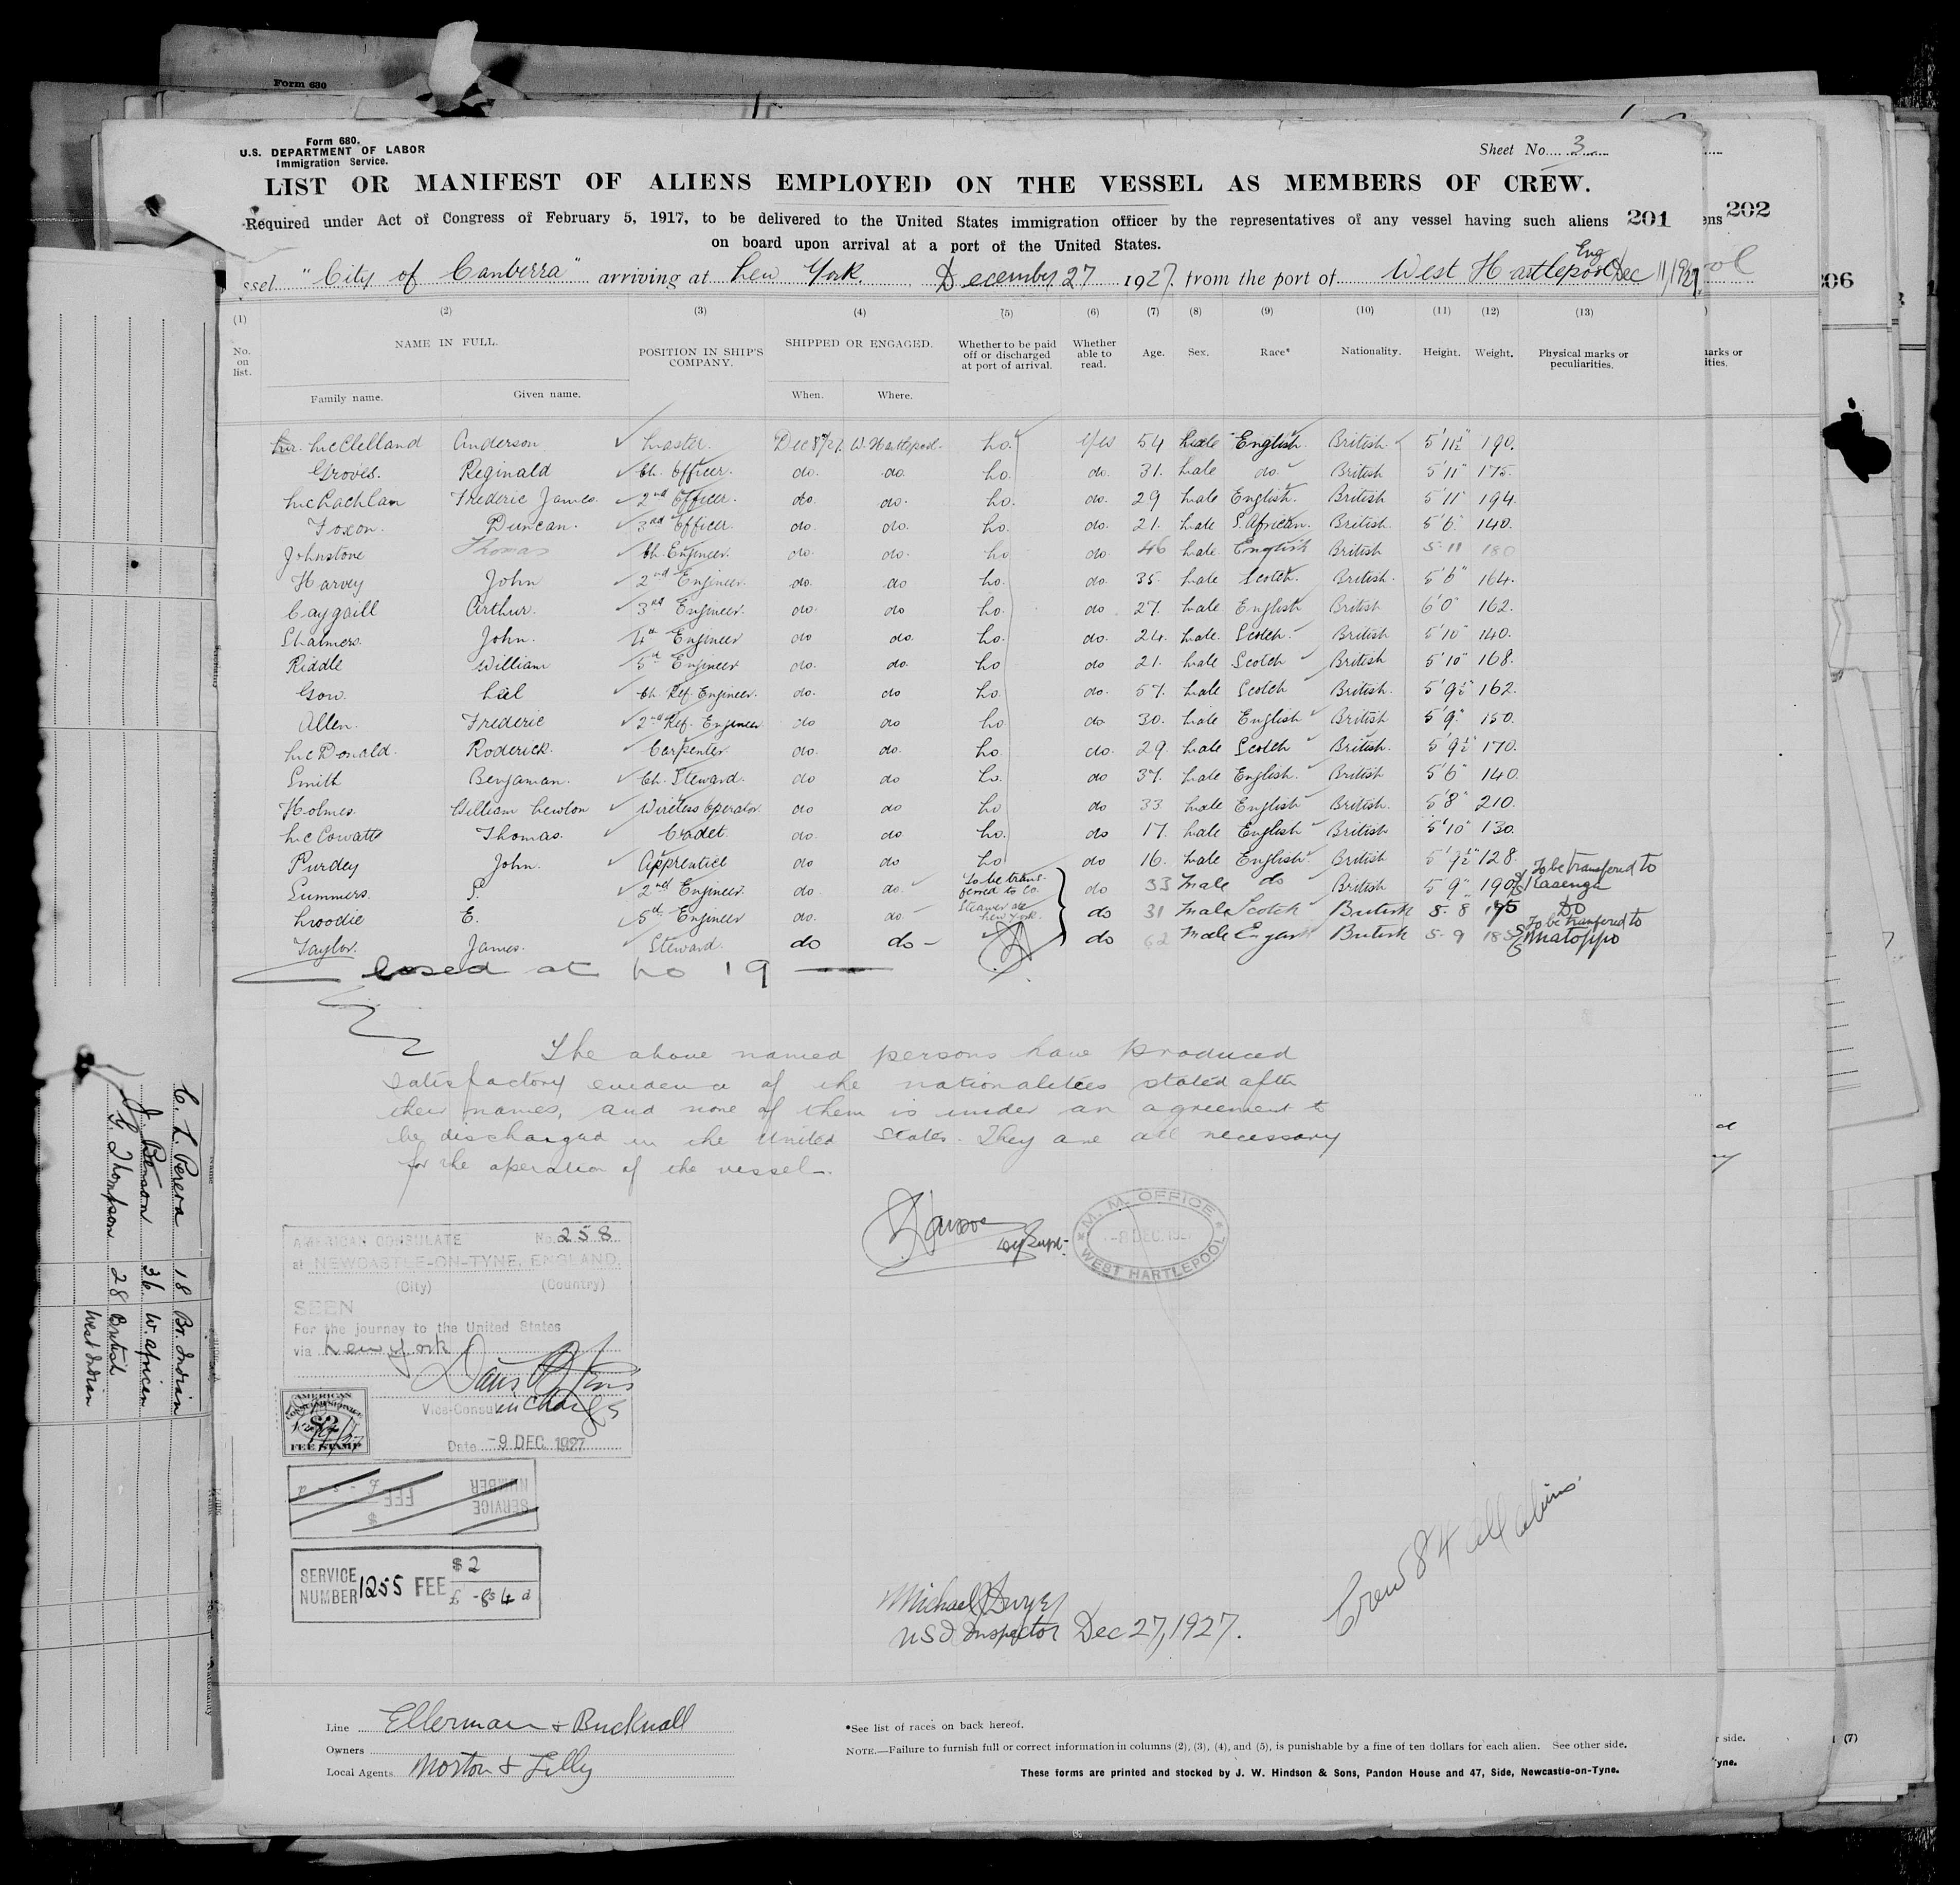 Form 680
Form 680.
U.S. DEPARTMENT OF LABOR
Immigration Service.
Sheet No. 3
LIST OR MANIFEST OF ALIENS EMPLOYED ON THE VESSEL AS MEMBERS OF CREW.
Required under Act of Congress of February 5, 1917, to be delivered to the United States immigration officer by the representatives of any vessel having such aliens 201
on board upon arrival at a port of the United States.
ens 202
06
ssel "City of Canberra" arriving at New York. December 27 1927. from the port of West Hartlepool Eng Dec 11/1927.
(1) (2) (3) (4) (5) (6) (7) (8) (9) (10) (11) (12) (13)
No. on list. NAME IN FULL. POSITION IN SHIP'S COMPANY. SHIPPED OR ENGAGED. Whether to be paid off or discharged at port of arrival. Whether able to read. Age. Sex. Race* Nationality. Height. Weight. Physical marks or peculiarities.
Family name. Given name. When. Where.
McClelland Anderson Master. Dec 8/27. W. Hartlepool. No. Yes 54 Male English British 5'11½" 190.
Groves. Reginald Ch. Officer. do. do. No. do. 31. Male do. British 5'11" 175.
McLachlan Frederic James. 2nd Officer. do. do. No. do. 29 Male English. British 5'11" 194.
Foxon. Duncan. 3rd Officer. do. do. No. do. 21. Male S. African. British. 5'6" 140.
Johnstone Thomas Ch. Engineer. do. do. No do. 46 Male English British 5-11 180
Harvey John 2nd Engineer. do. do No. do. 35. Male Scotch. British. 5'6" 164.
Caygill Arthur. 3rd Engineer. do. do No. do 27. Male English British 6'0" 162.
Chalmers. John. 4th Engineer do do. No. do. 24. Male. Scotch. British 5'10" 140.
Riddle William 5th Engineer do. do. No do 21. Male Scotch British 5'10" 168.
Gow. Neil Ch. Ref. Engineer. do. do No. do. 57. Male Scotch British. 5'9½" 162.
Allen. Frederic 2nd Ref. Engineer do do No do 30. Male English British 5'9" 150.
McDonald. Roderick. Carpenter do. do. No. do. 29. Male Scotch British. 5'9½" 170.
Smith Benjaman. Ch. Steward. do do No. do 37. Male English. British 5'6" 140.
Holmes. William Newton Wireless Operator. do do No do 33 Male English British. 5'8" 210.
McCowatt Thomas. Cadet. do. do No. do 17. Male English British 5'10" 130.
Purdey John. Apprentice do do No do 16. Male English. British 5'9½" 128.
Summers. S. 2nd Engineer. do. do. To be transferred to Co. Steamer at New York. do 33 Male do British 5'9" 190 To be transfered to S/S Kasenga
Moodie E. 5th Engineer do. do do 31 Male Scotch British 5-8 195 Do
Taylor. James. Steward. do do do 62 Male English British 5-9 185 To be transfered to S/S Matoppo
Closed at No 19
The above named persons have produced
satisfactory evidence of the nationalities stated after
their names, and none of them is under an agreement to
be discharged in the United States. They are all necessary
for the operation of the vessel.
Dy Supt.
M. M. OFFICE
8 DEC. 1927
WEST HARTLEPOOL
AMERICAN CONSULATE No. 258
at NEWCASTLE-ON-TYNE, ENGLAND.
(City) (Country)
SEEN
For the journey to the United States
via New York
Vice-Consul in charge
Date -9 DEC. 1927
AMERICAN
$2
FEE STAMP
£ - s - d
FEE
$
SERVICE
NUMBER
SERVICE NUMBER 1255 FEE $ 2
£ -8s 4 d
Michael Dwyer
US I Inspector Dec 27, 1927.
Crew 84 all aliens
Line Ellerman & Bucknall
Owners
Local Agents Norton & Lilly
*See list of races on back hereof.
NOTE.—Failure to furnish full or correct information in columns (2), (3), (4), and (5), is punishable by a fine of ten dollars for each alien. See other side.
These forms are printed and stocked by J. W. Hindson & Sons, Pandon House and 47, Side, Newcastle-on-Tyne.
C. L. Perera 18 Br. Indian
J. Benson 36 W. African
G. Thompson 28 British
West Indian
arks or
ities.
r side.
yne.
(7)